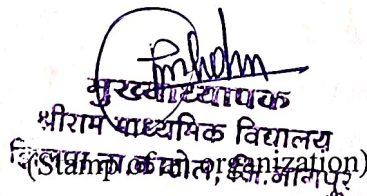 मुख्याध्यापक
श्रीराम माध्यमिक विद्यालय
ता. काटोल, जि. नागपूर
(Stamp of the organization)